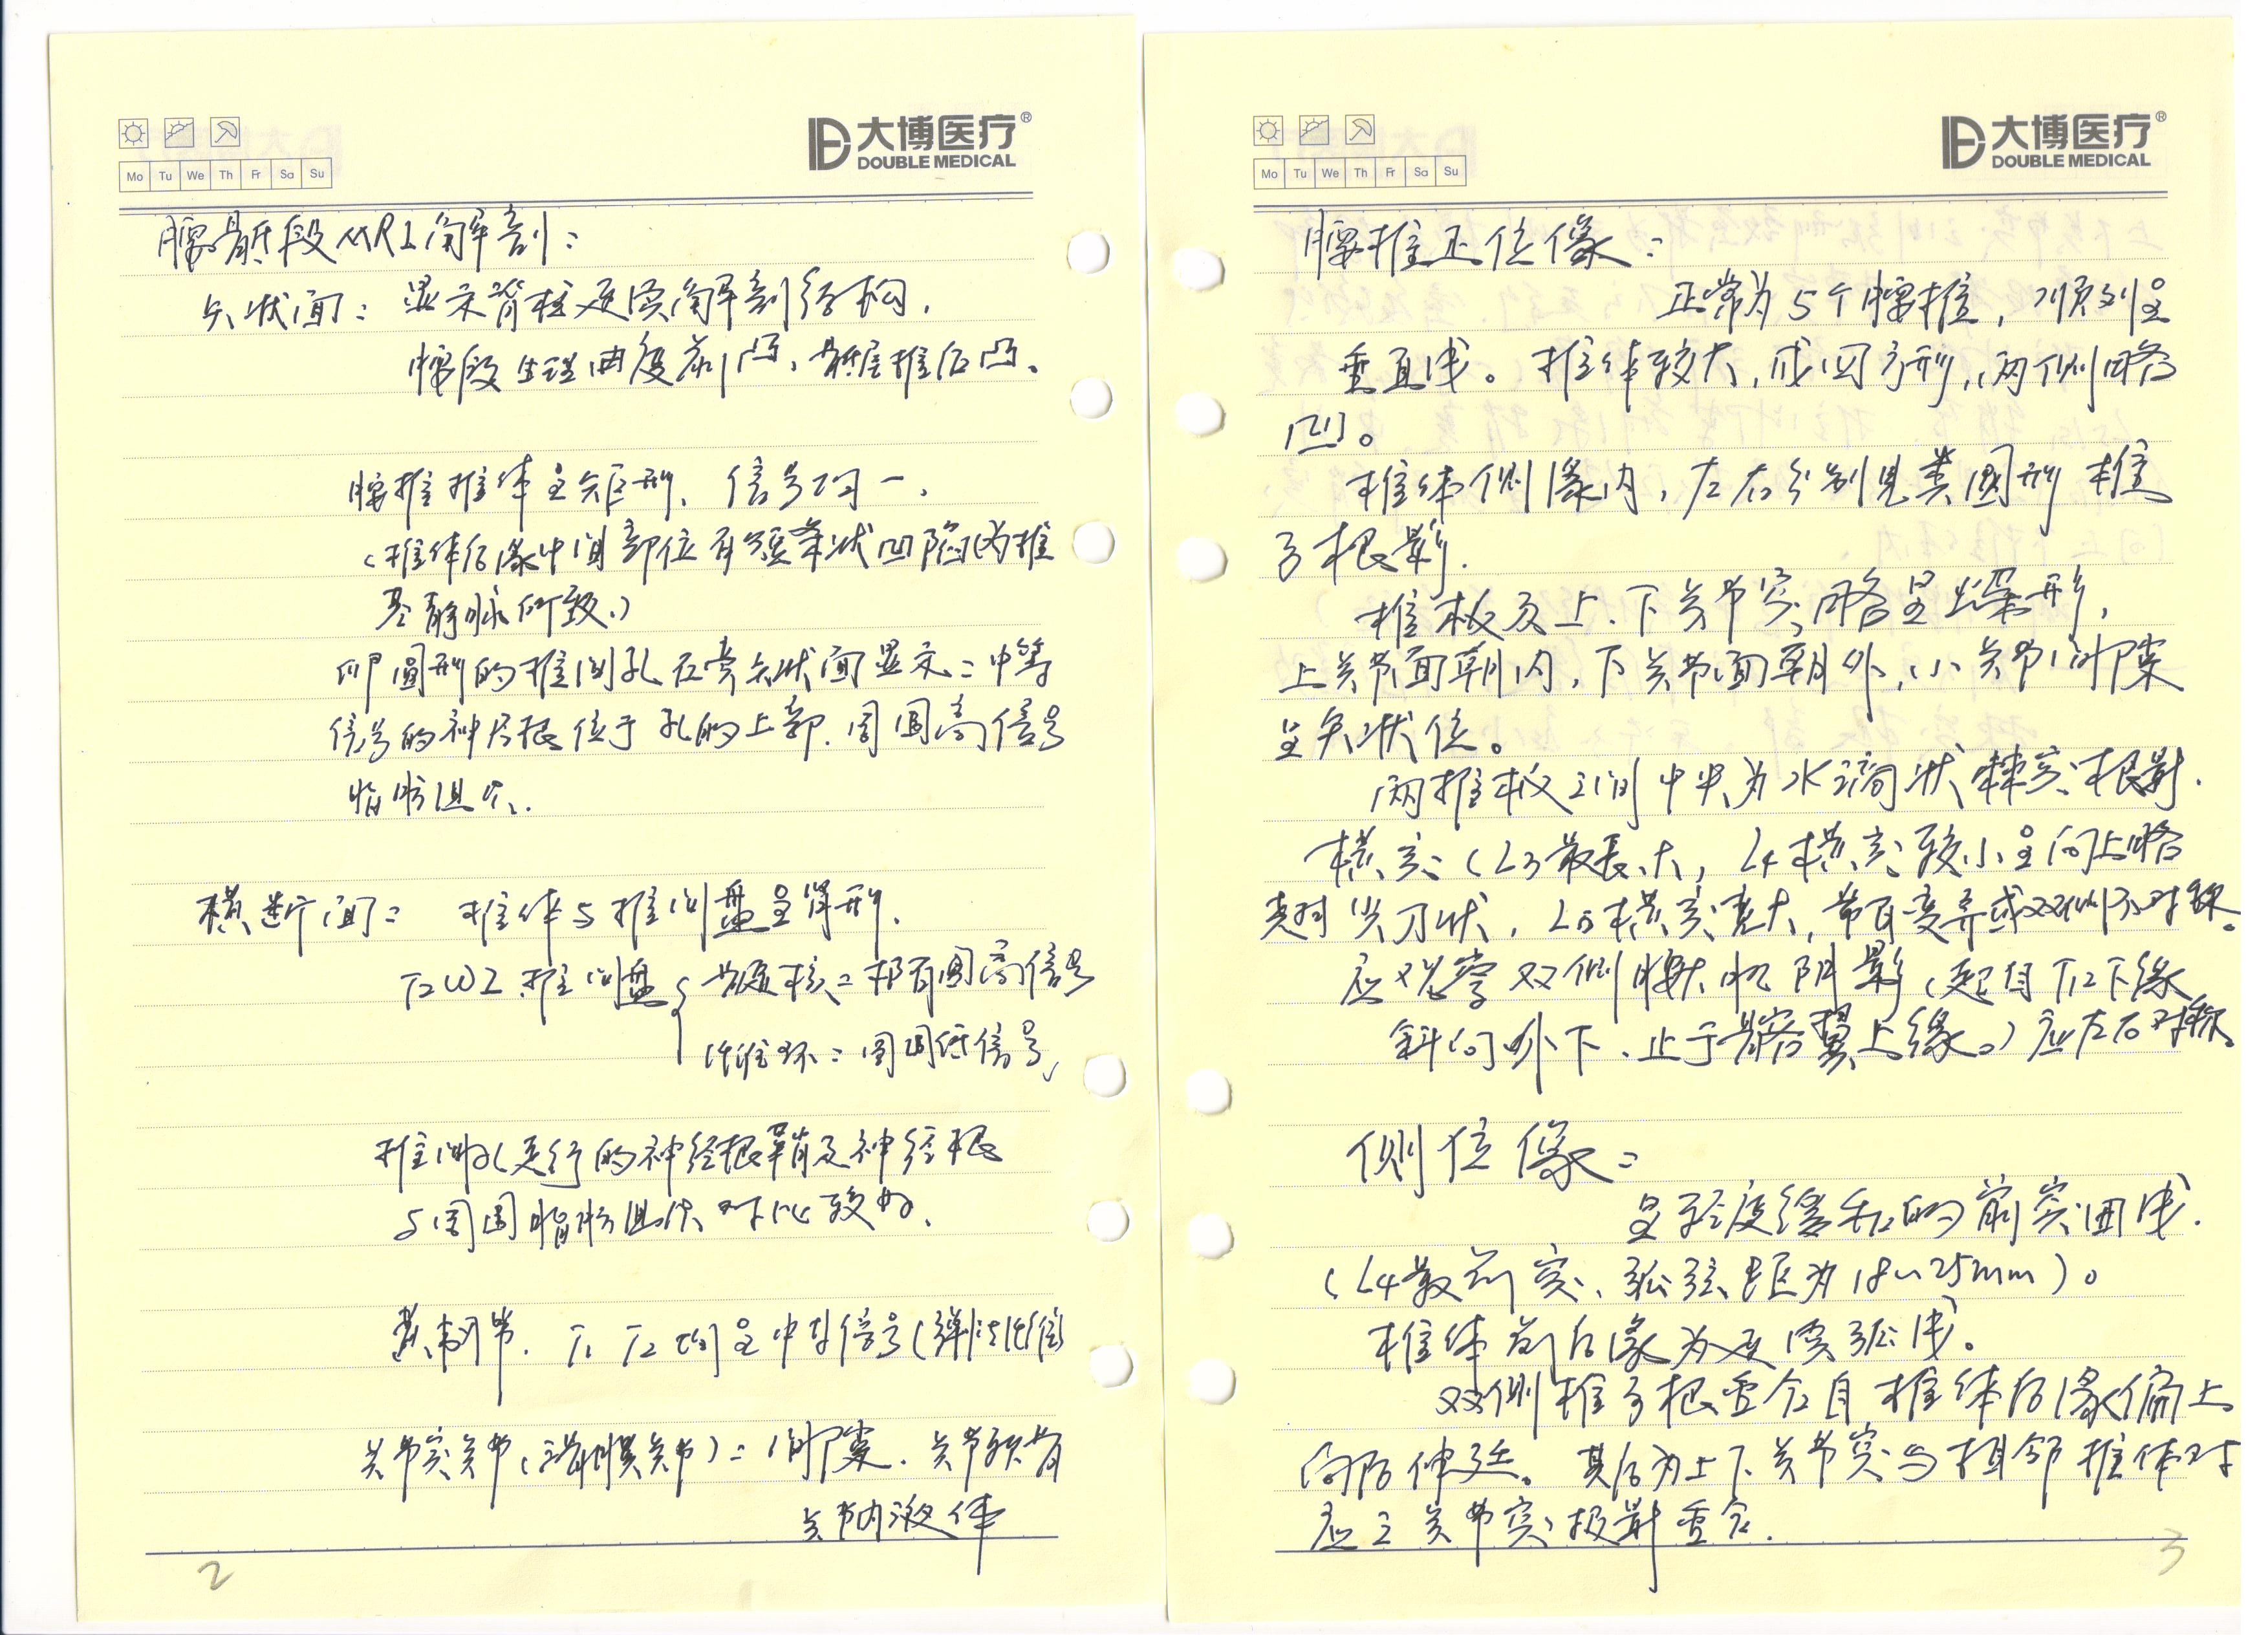 大博医疗®
DOUBLE MEDICAL
Mo Tu We Th Fr Sa Su
腰骶段MRI解剖:
矢状面: 显示脊柱连续解剖结构,
腰段生理曲度前凸、骶尾椎后凸、
腰椎椎体呈矩形、信号均一,
(椎体后缘中间部位有短条状凹陷为椎
基静脉所致、)
卵圆形的椎间孔在旁矢状面显示:中等
信号的神经根位于孔的上部、周围高信号
脂肪组织.
横断面: 椎体与椎间盘呈肾形.
T2WI 椎间盘 { 髓核:椭圆高信号
纤维环:周围低信号、
椎间孔走行的神经根鞘及神经根
与周围脂肪组织对比较好、
黄韧带. T1 T2均呈中等信号(弹性纤维)
关节突关节(滑膜关节):间隙、关节软骨
关节内液体
2
大博医疗®
DOUBLE MEDICAL
Mo Tu We Th Fr Sa Su
腰椎正位像:
正常为5个腰椎,顺列呈
垂直线。椎体较大,成四方形,两侧略
凹。
椎体侧缘内,左右分别见类圆形椎
弓根影.
椎板及上、下关节突略呈蝶形,
上关节面朝内,下关节面朝外,小关节间隙
呈矢状位。
两椎板之间中央为水滴状棘突根影.
横突(L3最长大, L4横突较小呈向上略
翘尖刀状, L5横突宽大,常有变异或双侧不对称。
应观察双侧腰大肌阴影(起自T12下缘
斜向外下、止于髂翼上缘。)应左右对称。
侧位像:
呈轻度缓和的前突曲线.
(L4最前突、弧弦距为18~25mm)。
椎体前后缘为连续弧线。
双侧椎弓根重合自椎体后缘偏上
向后伸延。其后为上下关节突与相邻椎体对
应之关节突投影重合.
3